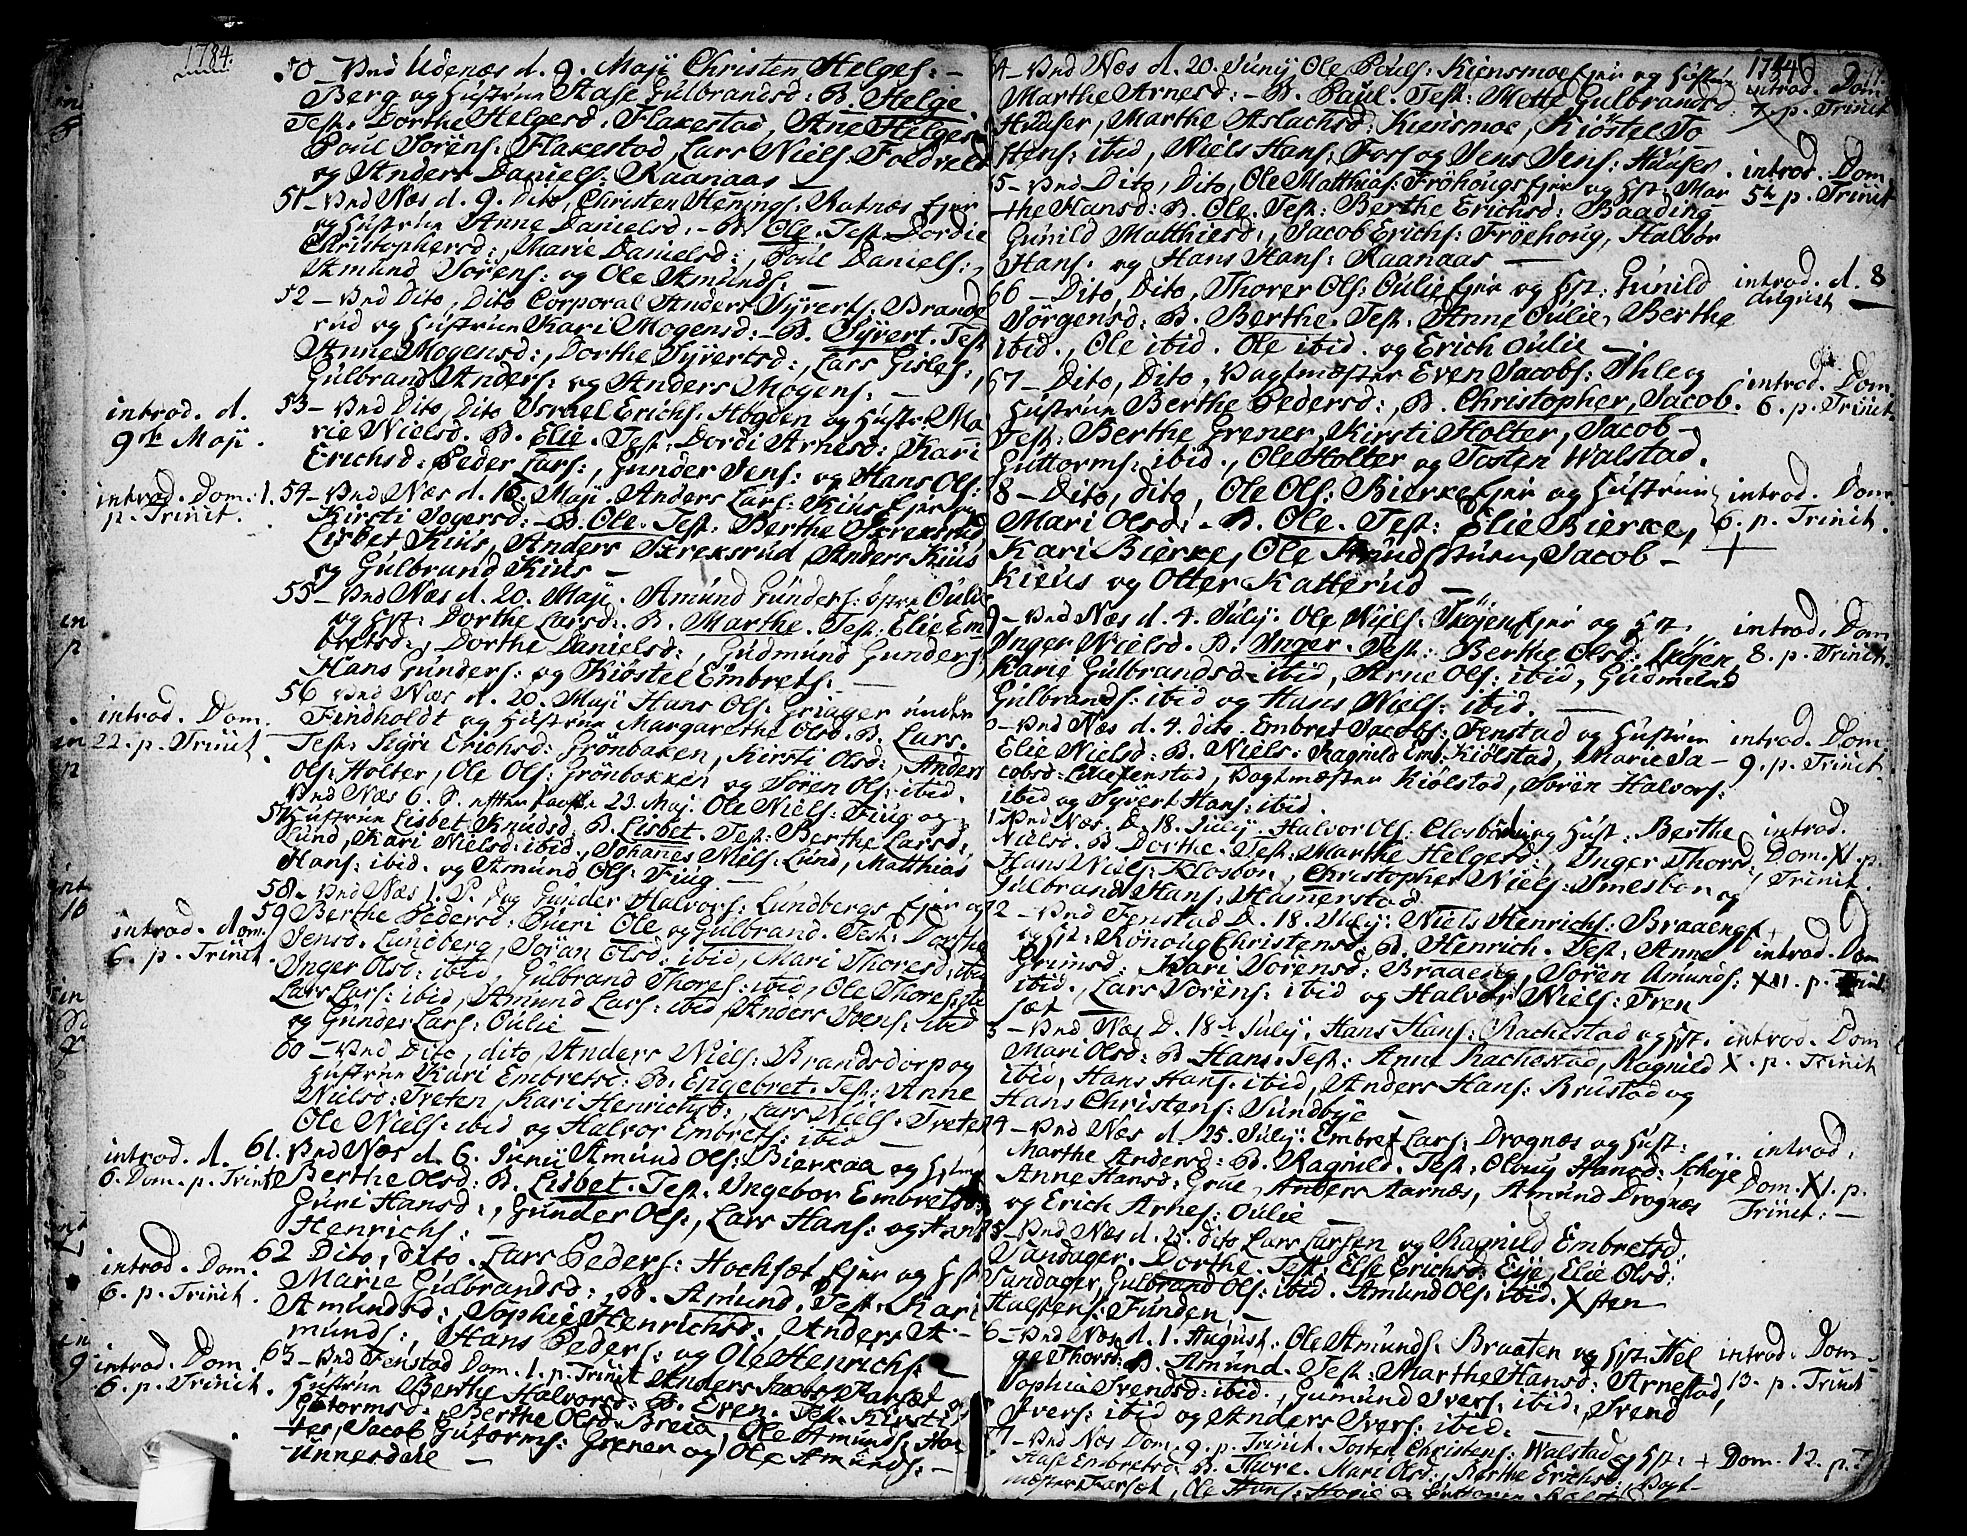 1784.
50 – Ved Udenæs d. 9. Maji Christen Helges: –
Berg og Hustrue Aase Gulbrandsd: B. Helge
Test. Dorthe Helgesd. Flakestad, Ane Helgesd
Poul Sörens: Flakestad, Lars Niels. Foldveld
og Anders Daniels: Raanaas –
51 – Ved Næs d. 9. Dito, Christen Henings. Ratnæs Ejer
og Hustrue Anne Danielsd: – B. Ole. Test. Dordie
Christophersd:, Marie Danielsd:, Poul Daniels:,
Amund Sörens: og Ole Amunds: –
52 – Ved Dito, Dito Corporal Anders Syverts: Brande
rud og Hustrue Kari Mogensd: – B. Syvert. Test
Anne Mogensd:, Dorthe Syvertsd:, Lars Gisles:,
Gulbrand Anders: og Anders Mogens: –
introd. d.
9de Maji.
53 – Ved Dito, Dito Israel Erichs: Hogden og Hustr: Ma
rie Nielsd. B. Elie. Test: Dordi Arnesd: Kari
Erichsd: Peder Lars:, Gunder Jens: og Hans Ols:
introd. Dom. 1.
p. Trinit.
54 – Ved Næs d. 16. Maji. Anders Lars: Kius Ejer og
Kirsti Jogersd: – B. Ole. Test: Berthe Skreksrud
Lisbet Kius, Anders Skreksrud, Anders Kius
og Gulbrand Kius –
55 – Ved Næs d. 20. Maji. Amund Gunders: östre Oulie
og Hst: Dorthe Larsd: B. Marthe. Test: Elie Em
bretsd:, Dorthe Danielsd:, Gudmund Gunders,
Hans Gunders: og Kiöstel Embrets. –
introd. Dom.
22. p. Trinit.
56 Ved Næs d. 20. Maji Hans Ols: Griager under
Findholdt og Hustrue Margarethe Olsd. B. Lars.
Test: Sigri Erichsd: Grönbaken, Kirsti Olsd:, Anders
Ols: Holter, Ole Ols: Grönbakken og Sören Ols: ibid.
Ved Næs 6. S. efter Paaske 23. Maj. Ole Niels: Fiug og –
57 Hustrue Lisbet Knudsd: B. Lisbet. Test: Berthe Larsd:
Lund, Kari Nielsd: ibid, Johanes Niels: Lund, Matthias
Hans: ibid. og Amund Ols: Fiug –
introd. d.
Dom.
6. p. Trinit.
58 – Ved Næs 1. P. dag Gunder Halvors: Lundbergs Ejer og
59 Berthe Pedersd: Tueri Ole og Gulbrand. Test: Dorthe
Jensd. Lundberg, Joran Olsd: ibid, Mari Thoresd: ibid
Inger Olsd: ibid, Gulbrand Thores: ibid, Ole Thores: ibid
Lars Lars: ibid, Amund Lars: ibid, Anders Svens: ibid
og Gunder Lars: Oulie –
60 – Ved Dito, dito, Anders Niels: Brandsdorp og
Hustrue Kari Embretsd: B. Engebret. Test: Anne
Nielsd: Treten, Kari Henrichsd:, Lars Niels: Treten
Ole Niels: ibid og Halvor Embrets: ibid –
introd. d.
6. Dom. p. Trinit
61. Ved Næs d. 6. Junij Amund Ols: Bierkaa og Hstrue
Berthe Olsd: B. Lisbet. Test. Ingebor Embretsd:
Guri Hansd:, Gunder Ols:, Lars Hans: og Hans
Henrichs: –
introd. Dom.
6. p. Trinit.
62 Dito, Dito. Lars Peders: Hochsæt Ejer og Hst
Marie Gulbrandsd:, B. Amund. Test: Kari
Amundsd:, Sophie Henrichsd:, Anders A –
munds:, Hans Peders: og Ole Henrichs:
introd. Dom.
6. p. Trinit.
63 – Ved Fenstad Dom. 1. p. Trinit Anders Farsæt og
Hustrue Berthe Halvorsd: B. Even. Test. Kirsti
Gutormsd:, Berthe Olsd Breia, Ole Amunds: Hol
tes, Jacob Gutorms: Grener og Ole Amunds: –
Unnerdele –
1784
4 – Ved Næs d. 20. Junij Ole Pouls: Kiensmoe Ejer og Hustrue
Marthe Arnesd: – B. Paul. Test: Mette Gulbrandsd:
Huuser, Marthe Aslachsd: Kiensmoe, Kiöstel To
stens: ibid, Niels Hans: Foss og Jens Jens: Huuser
introd. Dom
7. p. Trinit
5 – Ved Dito, Dito, Ole Matthias: Fröhougs Ejer og Hst: Mar
the Hansd: B. Ole. Test: Berthe Erichsd: Baading
Gunild Matthiesd:, Jacob Erichs: Fröehoug, Halvor
Hans. og Hans Hans: Raanaas –
introd. Dom.
5te p. Trinit
66 – Dito, Dito, Thorer Ols: Oulie Ejer og Hst: Gunild
Jörgensd: B. Berthe. Test: Anne Oulie, Berthe
ibid., Ole ibid. Ole ibid. og Erich Oulie –
introd. d. 8
August
67 – Dito, Dito, Vagtmæster Even Jacobs: Ihle og
Hustrue Berthe Pedersd:, B. Christopher, Jacob.
Test: Berthe Grener, Kirsti Holter, Jacob –
Guttorms: ibid., Ole Holter og Tosten Walstad.
introd. Dom.
6. p. Trinit.
8 – Dito, dito, Ole Ols: Bierke Ejer og Hustrue
Mari Olsd: – B. Ole. Test: Elie Bierke,
Kari Bierke, Ole Stuen, Jacob –
Kieus og Otter Katterud –
introd. Dom.
6. p. Trinit.
9 – Ved Næs d. 4. Julij. Ole Niels: Sköjen Ejer og Hst.
Inger Nielsd. B. Inger. Test: Berthe Olsd: Sköjen
Karie Gulbrandsd: ibid, Arne Ols: ibid, Gudmund
Gulbrands: ibid og Hans Niels: ibid.
introd. Dom
8. p. Trinit.
0 – Ved Næs d. 4. dito. Embret Jacobs: Fenstad og Hustrue
Elie Nielsd: B. Niels: Ragnild Emb: Kiölstad, Marie Ja –
cobsd: Fenstad, Vagtmæster Kiölstad, Sören Halvors:
ibid og Syvert Hans: ibid.
introd. Dom.
9. p. Trinit.
1 Ved Næs. D. 18. Julij. Halvor Ols: Closbön og Hust: Berthe
Nielsd: B. Dorthe. Test: Marthe Helgesd:, Inger Thorsd:
Hans Niels: Klosbön, Christopher Niels: Smesbön og
Gulbrand Hans: Hamerstad
introd.
Dom. XI. p.
Trinit.
2 – Ved Fenstad D. 18. Julij: Niels Henrichs: Braaengs
og Hst: Rönoug Christensd: B. Henrich. Test: Anne
Grimsd: Kari Sörensd: Braaeng, Sören Amunds:
ibid., Lars Sörens: ibid og Halvor Niels: Fren
sæt
introd. Dom
XII. p. Trinit
3 – Ved Næs D. 18de Julij, Hans Hans: Rachestad og Hst.
Mari Olsd: B. Hans. Test: Anne Rachestad, Ragnild
ibid, Hans Hans: ibid, Anders Hans: Rustad og
Hans Christens: Sundbye –
introd. Dom
X. p. Trinit
4 – Ved Næs d. 25. Julij: Embret Lars: Drognæs og Hust:
Marthe Andersd: B. Ragnild. Test: Oloug Hansd: Schoje
Anne Hansd: Grue, Anders Aarnæs, Amund Drognæs
og Erich Arnes: Oulie –
introd.
Dom. XI. p.
Trinit: –
5 – Ved Næs d. 25. dito Lars Larsen og Ragnild Embretsd:
Sandager. Dorthe. Test. Else Erichsd: Eije, Elie Olsd:
Sundager, Gulbrand Ols: ibid. Amund Ols: ibid. Xsten
Halstens: Funden. –
6 – Ved Næs. d. 1. August: Ole Amunds. Braaten og Hst: Hel
ge Thorsd: B. Amund. Test: Marthe Hansd: Arnestad,
Sophia Svendsd: ibid., Gumund Ivers: ibid:, Svend
Ivers: ibid og Anders Ivers: ibid.
introd: Dom
13. p. Trinit
7 – Ved Næs Dom. 9. p. Trinit. Tosten Christens: Walstad og Hst: +
Aase Embretsd B. Thore. Mari Olsd:, Berthe Erichsd:, Vagt –
mæster Farsæt, Ole Hans:
Dom. 12. p. T